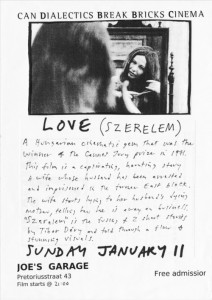 CAN DIALECTICS BREAK BRICKS CINEMA
LOVE (SZERELEM)
A Hungarian cinematic gem that was the
winner of the Cannes Jury prize in 1971.
This film is a captivating, haunting story
A wife whose husband has been arrested
and imprisoned in the former East Block.
The wife starts lying to her husband's dying
mother, telling her he is away on
Szerelem is the of 2 short stories
by Tibor Déry and told through a flow of
stunning visuals.
SUNDAY JANUARY 11
JOE'S GARAGE
Pretoriusstraat 43
Film starts @ 21:00
Free admission